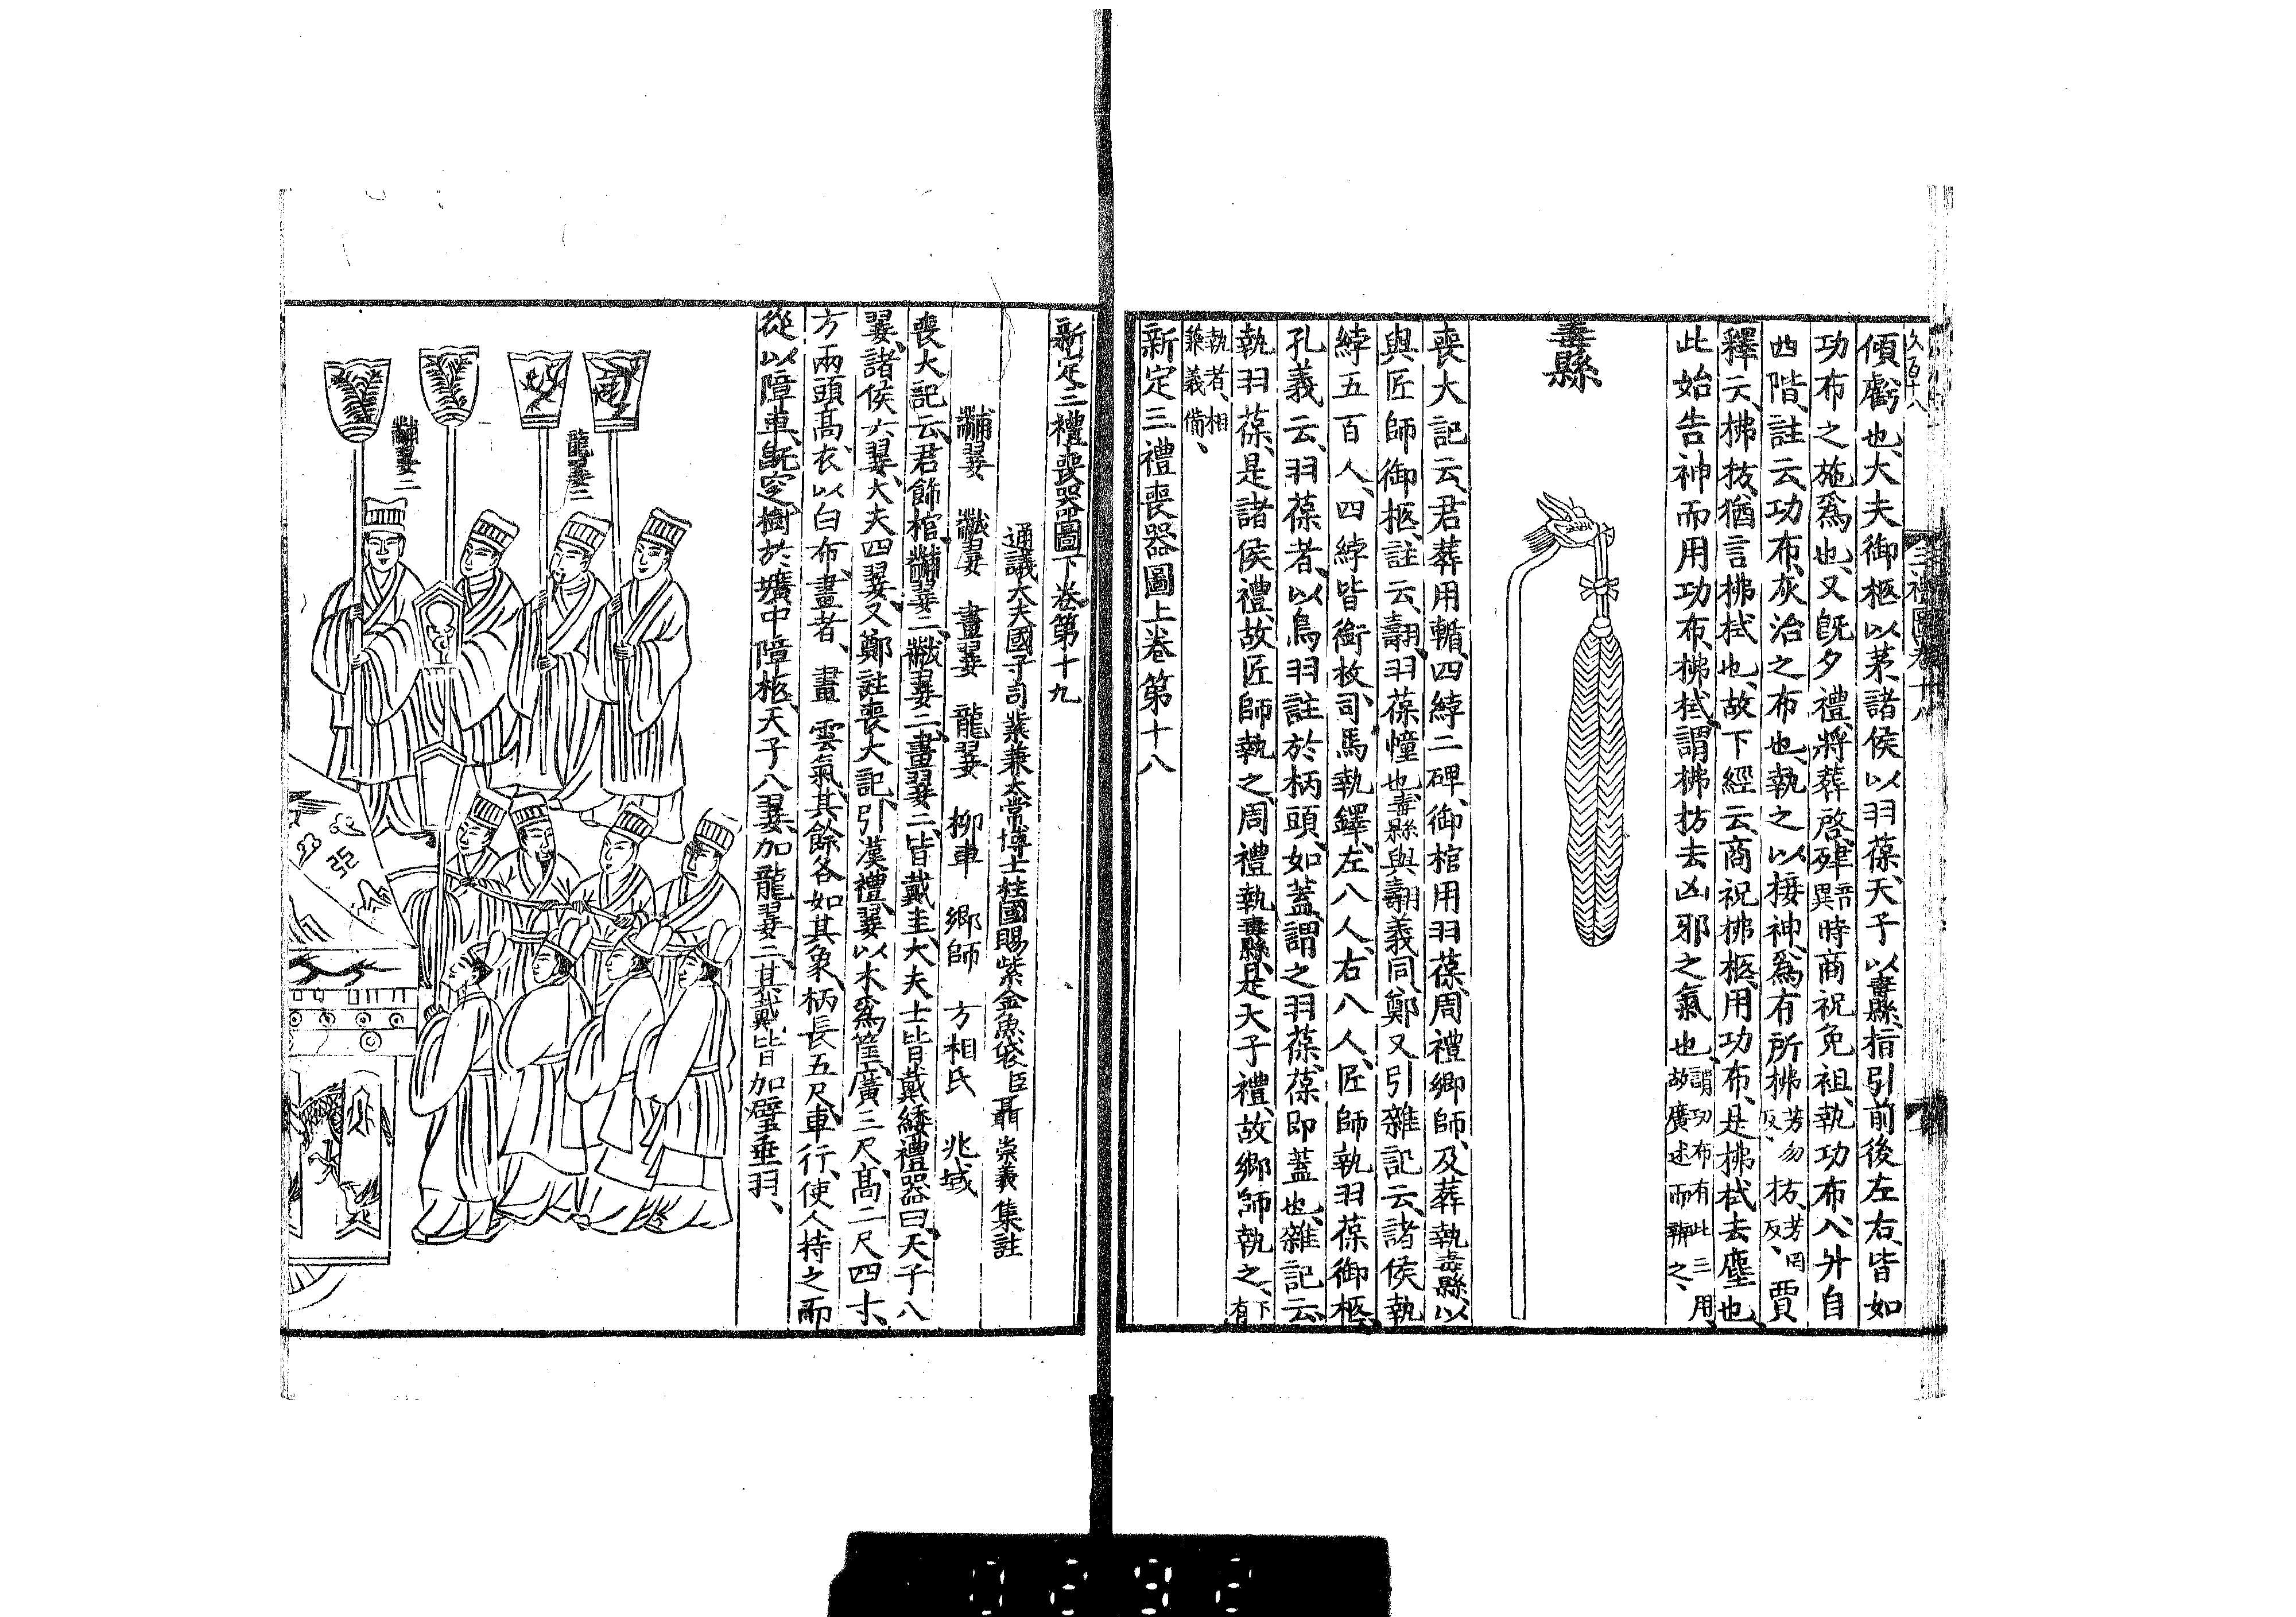 傾虧也、大夫御柩以茅、諸侯以羽葆、天子以纛、指引前後左右、皆如
功布之施爲也、又旣夕禮、將葬啓殯時、商祝免袒、執功布、入升自
西階、註云、功布、灰治之布也、執之以接神、爲有所拂芳勿反、扐芳罔反、賈
釋云、拂扐、猶言拂拭也、故下經云、商祝拂柩、用功布、是拂拭去塵也、
此始告神而用功布、拂拭、謂拂扐去凶邪之氣也、謂功布有此三用、故廣述而辨之、
纛
喪大記云、君葬用輴、四綍二碑、御棺用羽葆、周禮鄉師、及葬執纛、以
與匠師御柩、註云、翿、羽葆幢也、纛與翿義同、鄭又引雜記云、諸侯執
綍五百人、四綍皆銜枚、司馬執鐸、左八人、右八人、匠師執羽葆御柩、
孔義云、羽葆者、以鳥羽註於柄頭、如蓋、謂之羽葆、葆即蓋也、雜記云、
執羽葆、是諸侯禮、故匠師執之、周禮執纛、是天子禮、故鄉師執之、下有
執者、相兼義備、
新定三禮喪器圖上卷第十八
三禮圖卷十八
新定三禮喪器圖下卷第十九
通議大夫國子司業兼太常博士柱國賜紫金魚袋臣聶崇義集註
黼翣 黻翣 畫翣 龍翣 柳車 鄉師 方相氏 兆域
喪大記云、君飾棺、黼翣二、黻翣二、畫翣二、皆戴圭、大夫士皆戴綏、禮器曰、天子八
翣、諸侯六翣、大夫四翣、又鄭註喪大記、引漢禮、翣以木爲筐、廣三尺、高二尺四寸、
方兩頭高、衣以白布、畫者、畫雲氣、其餘各如其象、柄長五尺、車行、使人持之而
從、以障車、旣窆、樹於壙中障柩、天子八翣、加龍翣二、其戴皆加璧垂羽、
龍翣二
黼翣二
0292